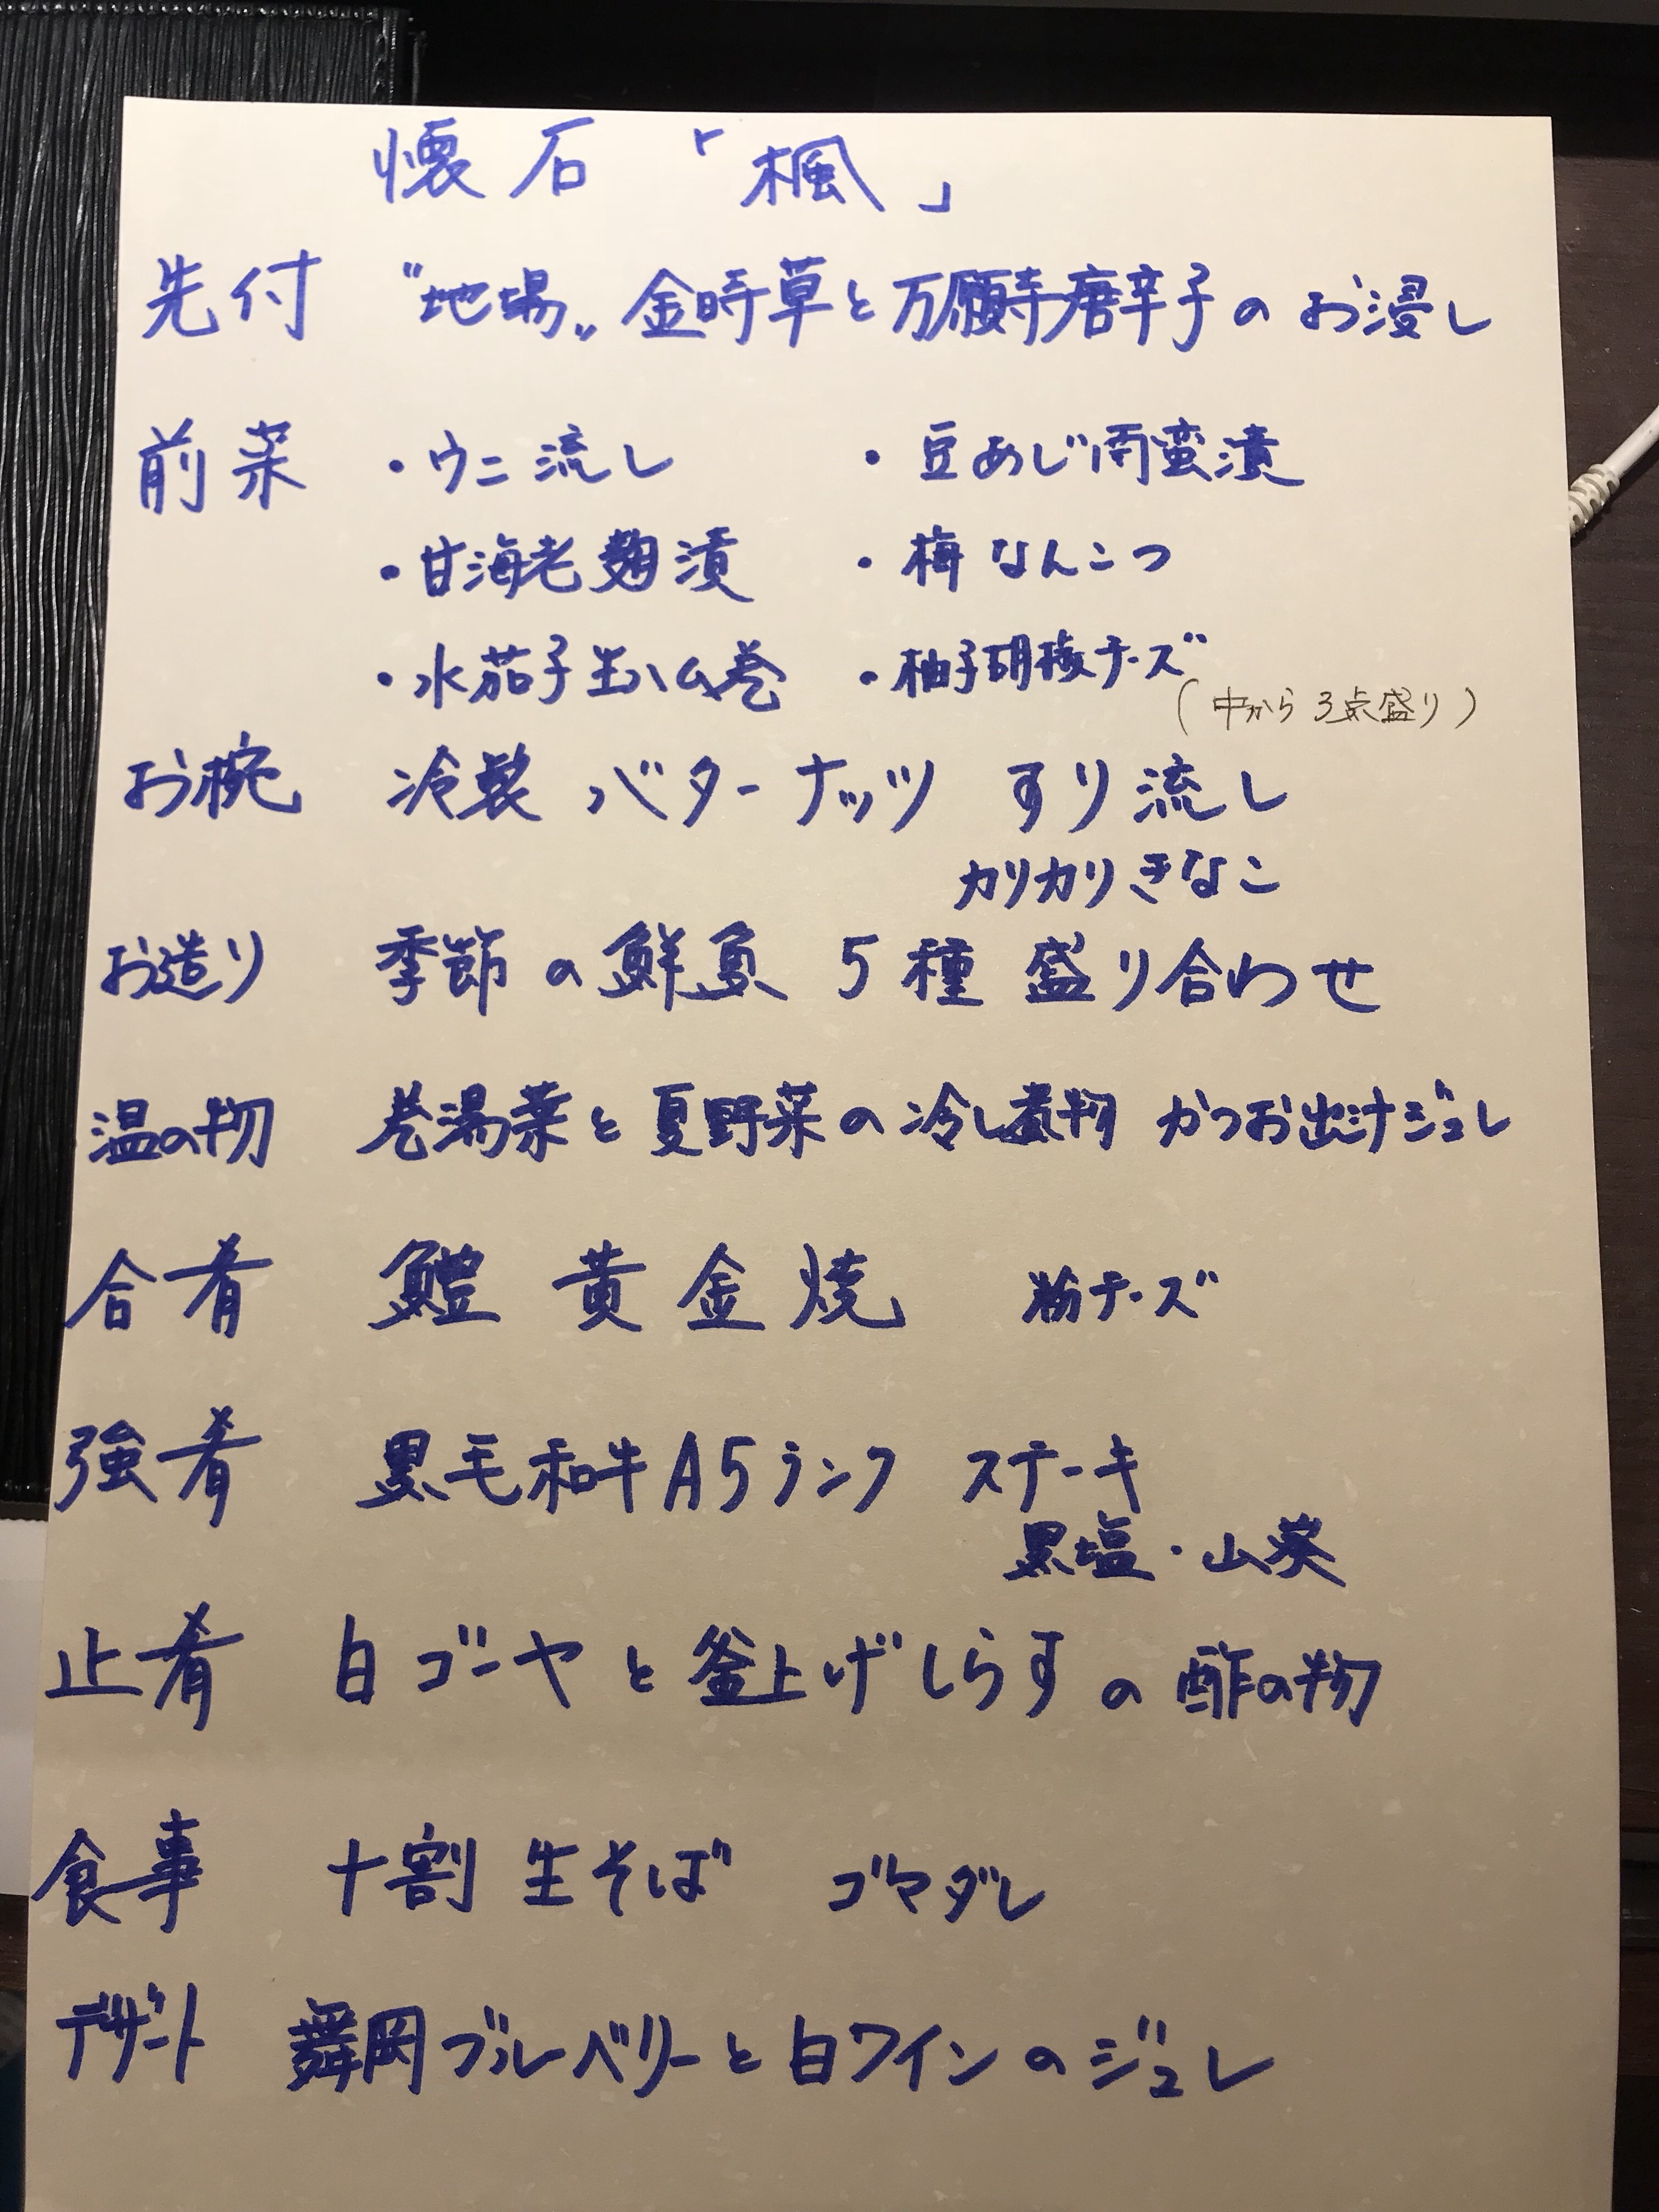 懐石「楓」
先付 〝地場〟金時草と万願寺唐辛子のお浸し
前菜 ・ウニ流し ・豆あじ南蛮漬
・甘海老麹漬 ・梅なんこつ
・水茄子生ハム巻 ・柚子胡椒チーズ
(中から3点盛り)
お椀 冷製 バターナッツ すり流し
カリカリきなこ
お造り 季節の鮮魚 5種 盛り合わせ
温の物 巻湯葉と夏野菜の冷し煮物 かつお出汁ジュレ
合肴 鱧 黄金焼 粉チーズ
強肴 黒毛和牛A5ランク ステーキ
黒塩・山葵
止肴 白ゴーヤと釜上げしらすの酢の物
食事 十割 生そば ゴマダレ
デザート 舞岡ブルーベリーと白ワインのジュレ